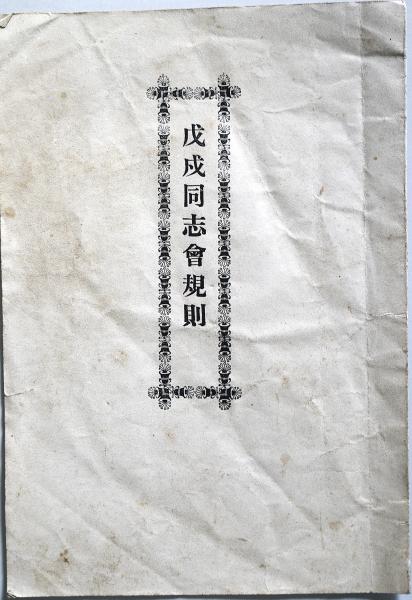 戊戍同志會規則